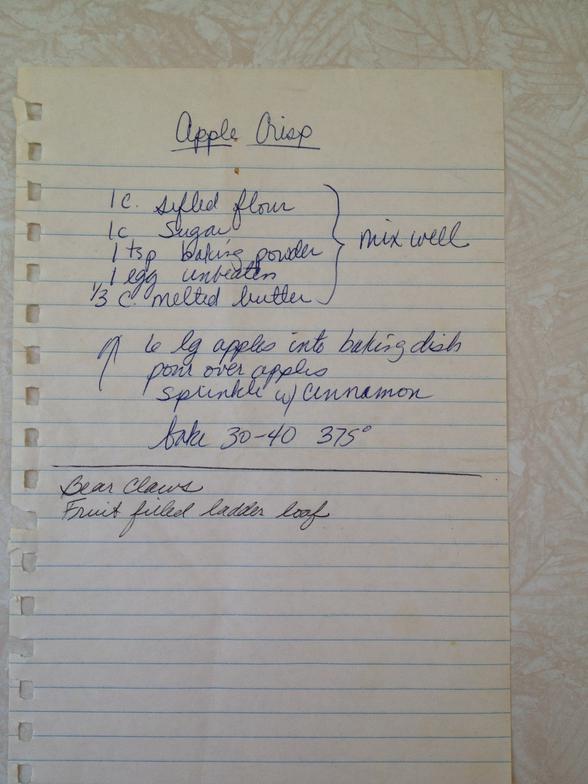 Apple Crisp
1 c. sifted flour
1 c Sugar
1 tsp baking powder
1 egg unbeaten
1/3 c. melted butter
mix well
6 lg apples into baking dish
pour over apples
sprinkle w/ cinnamon
bake 30-40 375°
Bear Claws
Fruit filled ladder loaf